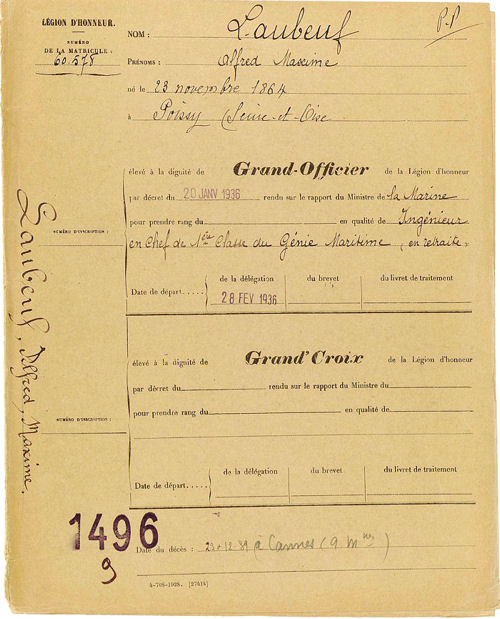 LÉGION D'HONNEUR.
NUMÉRO
DE LA MATRICULE :
60.578
P.P
NOM : Laubeuf
PRÉNOMS : Alfred Maxime
né le 23 novembre 1864
à Poissy (Seine-et-Oise
élevé à la dignité de Grand-Officier de la Légion d'honneur
par décret du 20 JANV 1936 rendu sur le rapport du Ministre de la Marine
pour prendre rang du en qualité de Ingénieur
en Chef de 1ère Classe du Génie Maritime, en retraite.
NUMÉRO D'INSCRIPTION :
de la délégation du brevet du livret de traitement
Date de départ....
28 FEV 1936
Laubeuf, Alfred, Maxime.
élevé à la dignité de Grand'Croix de la Légion d'honneur
par décret du rendu sur le rapport du Ministre du
pour prendre rang du en qualité de
NUMÉRO D'INSCRIPTION :
de la délégation du brevet du livret de traitement
Date de départ.....
1496
9
Date du décès : 23-12-39 à Cannes (a. mnes)
4-708-1928. [27414]